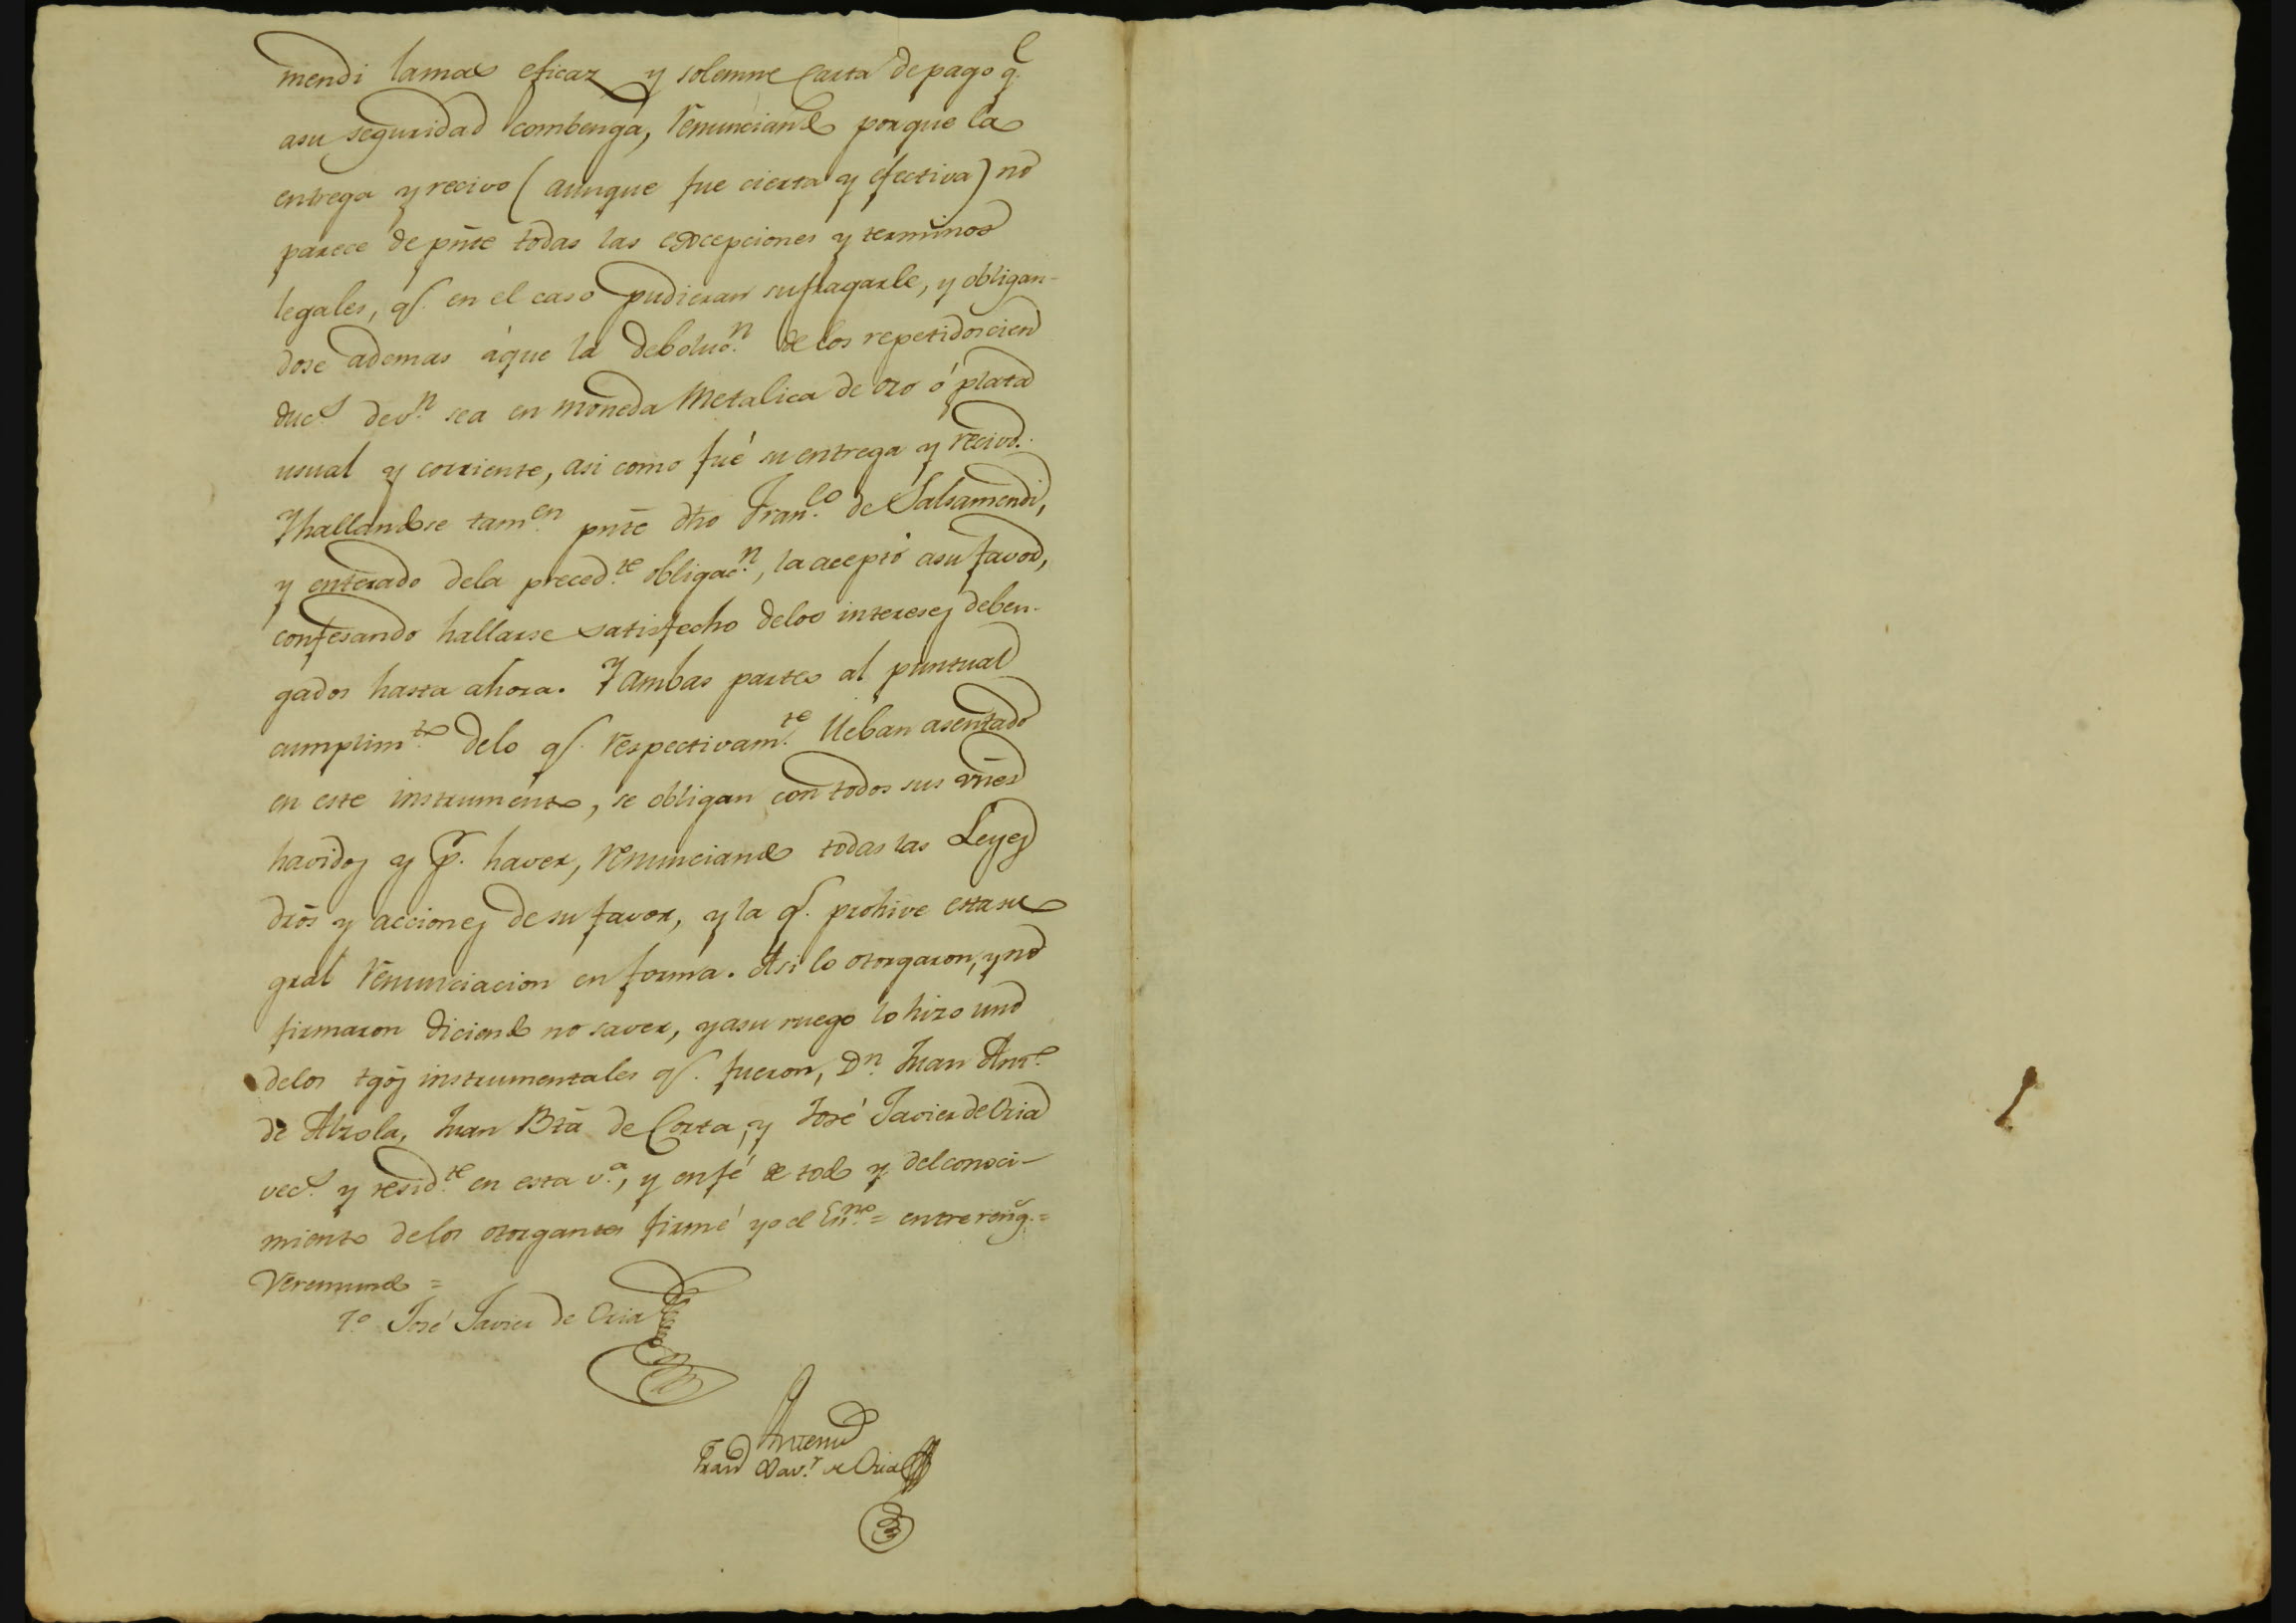 mendi lamas eficaz y solemne Carta depago q.e
asu seguridad combenga, renunciando porque la
entrega y recivo (aunque fue cierta y efectiva) no
parece de pñte todas las excepciones y terminos
legales, q.e en el caso pudieran sufragarle, y obligan-
dose ademas áque la deboluc.n de los repetidos cien
duc.s de v.n sea en moneda Metalica de oro ó plata
usual y corriente, asi como fué su entrega y recivo.
Y hallandose tam.en pñte dho Fran.co de Salsamendi,
y enterado dela preced.te obligac.n, la aceptó asu favor,
confesando hallarse satisfecho delos intereses deben-
gados hasta ahora. Y ambas partes al puntual
cumplim.to delo q.e respectivam.te lleban asentado
en este instrumento, se obligan con todos sus vñes
havidos y p.r haver, renunciando todas las Leyes
dr̃os y acciones de su favor, y la q.e prohive esta su
gral renunciacion en forma. Asi lo otorgaron, y no
firmaron diciendo no saver, y asu ruego lo hizo uno
delos tgõs instrumentales q.e fueron, D.n Juan Ant.o
de Alzola, Juan Bta de Corta, y José Javier de Oria
vec.s y resid.te en esta v.a, y en fé de todo y del conoci-
miento delos otorgantes firmé yo el Es.no = entre reng. =
Veremundo =
T.o José Javier de Oria
Antemi
Fran.co Xav.r de Oria